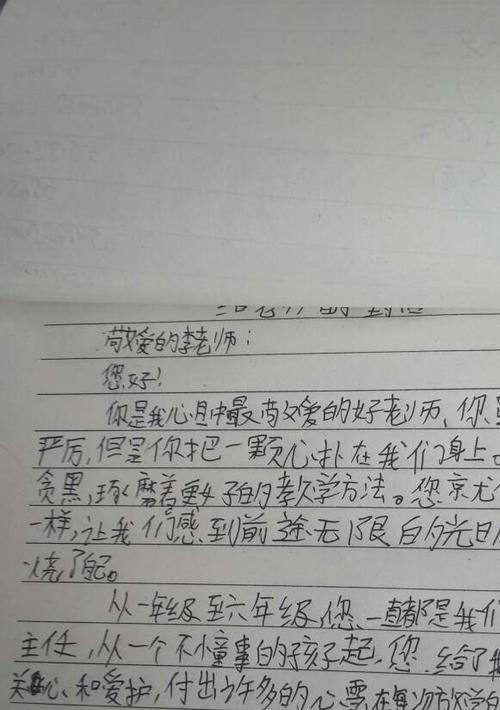 给老师的一封信
敬爱的李老师：
您好！
你是我心目中最敬爱的好老师，你
严厉，但是你把一颗心扑在我们身上
贪黑，琢磨着更好的教学方法。您京尤
一样，让我们感到前途无限白的光日
烧了自己。
从一年级至六年级，您一直都是我们
主任，从一个不懂事的孩子起，您给了
关心和爱护，付出许多的心雪在每次放学